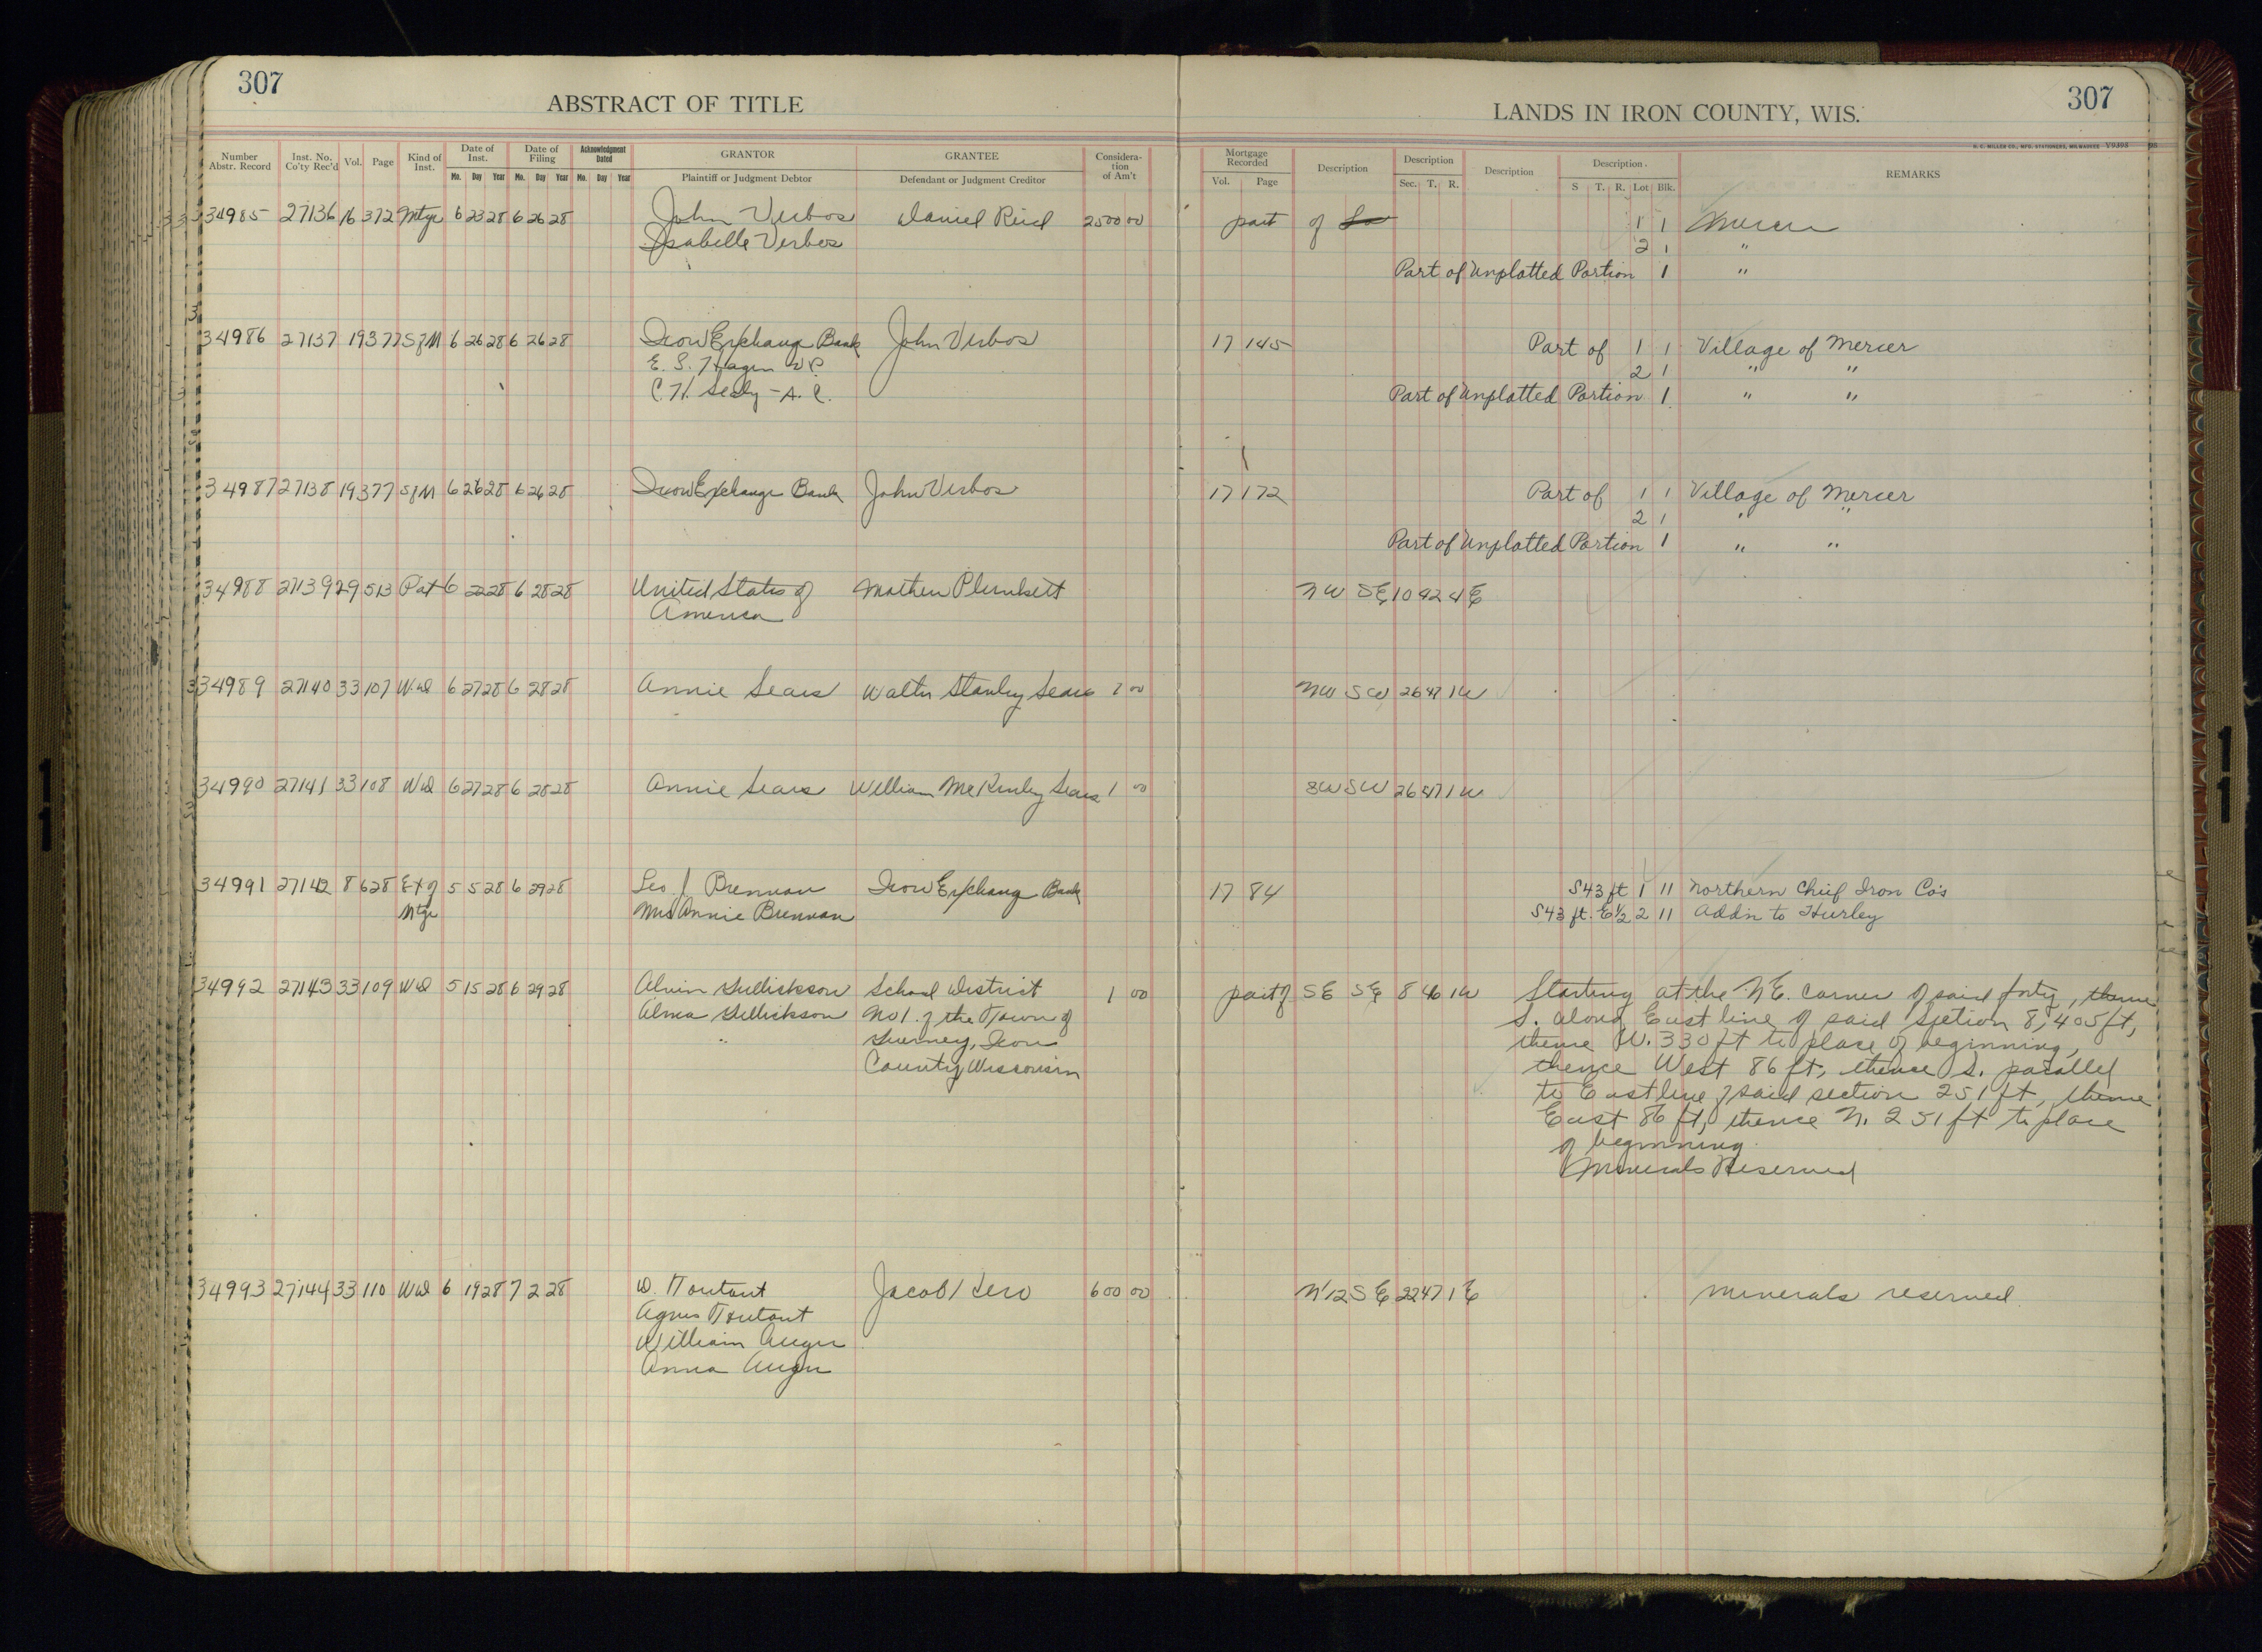 307
307
ABSTRACT OF TITLE
LANDS IN IRON COUNTY, WIS.
H. C. MILLER CO., MFG. STATIONERS, MILWAUKEE V9393
Number Abstr. Record Inst. No. Co'ty Rec'd Vol. Page Kind of Inst. Date of Inst. Date of Filing Acknowledgment Dated GRANTOR GRANTEE Consideration of Am't Mortgage Recorded Description Description Description Description REMARKS
Mo. Day Year Mo. Day Year Mo. Day Year Plaintiff or Judgment Debtor Defendant or Judgment Creditor Vol. Page Sec. T. R. S T. R. Lot Blk.
34985 27136 16 372 Mtge 6 23 28 6 26 28 John Verbos Daniel Reid 2500 00 part of 1 1 Mercer
Isabelle Verbos 2 1 "
Part of Unplatted Portion 1 "
34986 27137 19 377 SfM 6 26 28 6 26 28 Iron Exchange Bank John Verbos 17 145 Part of 1 1 Village of Mercer
E. S. Hagen V P. 2 1 " "
C. H. Seely - A. C. Part of Unplatted Portion 1 " "
34987 27138 19 377 SfM 6 26 28 6 26 28 Iron Exchange Bank John Verbos 17 172 Part of 1 1 Village of Mercer
2 1 " "
Part of Unplatted Portion 1 " "
34988 27139 29 513 Pat 6 22 28 6 28 28 United States of Mathew Plunkett NW SE 10 42 4 E
America
34989 27140 33 107 Wd 6 27 28 6 28 28 Annie Sears Walter Stanley Sears 1 00 NW SW 26 47 1 W
34990 27141 33 108 Wd 6 27 28 6 28 28 Annie Sears William McKinley Sears 1 00 SW SW 26 47 1 W
34991 27142 8 628 Ext of 5 5 28 6 29 28 Leo J Brennan Iron Exchange Bank 17 84 S43 ft 1 11 Northern Chief Iron Co's
Mtge Mrs Annie Brennan S43 ft. E½ 2 11 Add'n to Hurley
34992 27143 33 109 Wd 5 15 28 6 29 28 Alvin Gullickson School District 1 00 part of SE SE 8 46 1 W Starting at the N E. corner of said forty, thence
Alma Gullickson No 1. of the Town of S. along East line of said section 8, 405 ft,
" Gurney, Iron thence W. 330 ft to place of beginning,
County Wisconsin thence West 86 ft, thence S. parallel
to East line of said section 251 ft, thence
East 86 ft, thence N. 251 ft to place
of beginning
Minerals Reserved
34993 27144 33 110 Wd 6 19 28 7 2 28 D. Toutant Jacob Lero 600 00 N 1/2 S E 22 47 1 E minerals reserved
Agnes Toutant
William Auger
Anna Auger